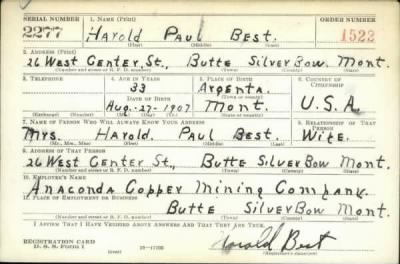 SERIAL NUMBER 1. NAME (Print) ORDER NUMBER
2277 Harold Paul Best. 1522
(First) (Middle) (Last)
2. ADDRESS (Print)
26 West Center St., Butte Silver Bow. Mont.
(Number and street or R. F. D. number) (Town) (County) (State)
3. TELEPHONE 4. AGE IN YEARS 5. PLACE OF BIRTH 6. COUNTRY OF CITIZENSHIP
33 Argenta.
DATE OF BIRTH (Town or county)
Aug-27-1907 Mont. U.S.A.
(Exchange) (Number) (Mo.) (Day) (Yr.) (State or country)
7. NAME OF PERSON WHO WILL ALWAYS KNOW YOUR ADDRESS 8. RELATIONSHIP OF THAT PERSON
Mrs. Harold. Paul Best. Wife.
(Mr., Mrs., Miss) (First) (Middle) (Last)
9. ADDRESS OF THAT PERSON
26 West Center St., Butte Silver Bow Mont.
(Number and street or R. F. D. number) (Town) (County) (State)
10. EMPLOYER'S NAME
Anaconda Copper Mining Company.
11. PLACE OF EMPLOYMENT OR BUSINESS
Butte Silver Bow Mont.
(Number and street or R. F. D. number) (Town) (County) (State)
I AFFIRM THAT I HAVE VERIFIED ABOVE ANSWERS AND THAT THEY ARE TRUE.
REGISTRATION CARD
D. S. S. FORM 1 Harold Best
(over) 16—17105 (Registrant's signature)